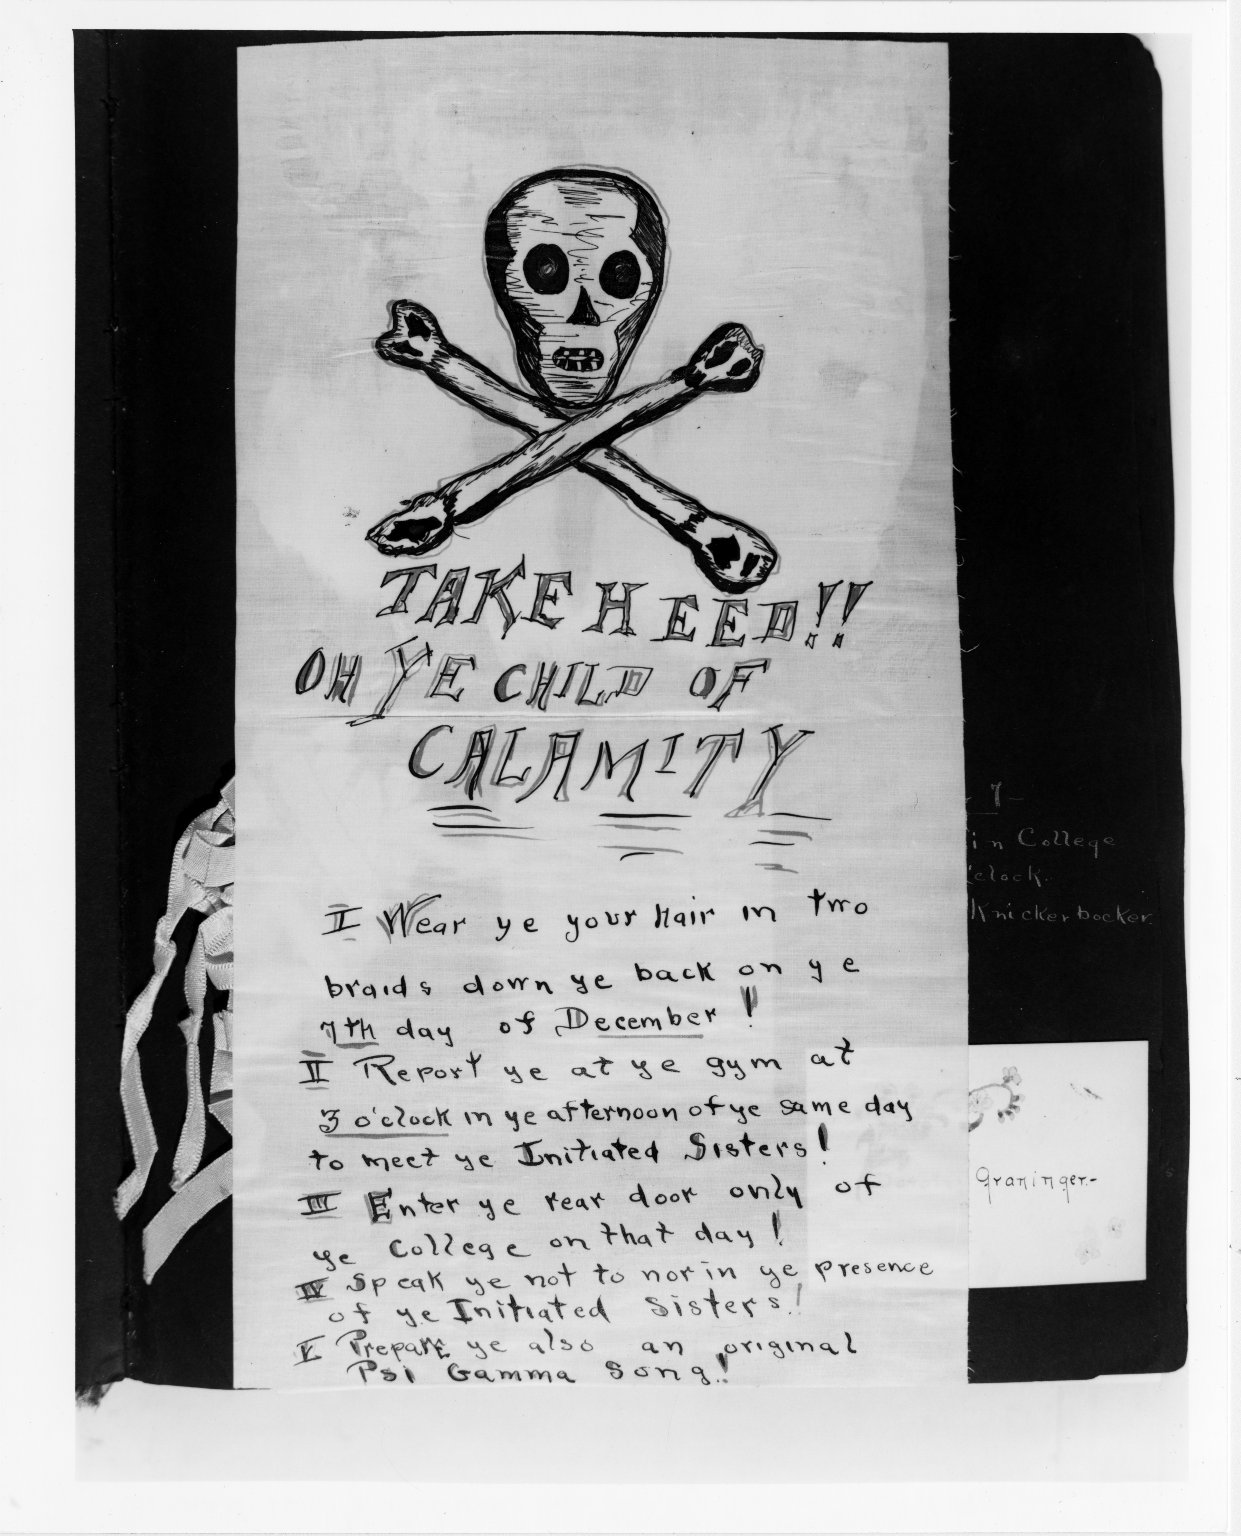 TAKE HEED!!
OH YE CHILD OF
CALAMITY
I Wear ye your hair in two
braids down ye back on ye
7th day of December!
II Report ye at ye gym at
3 o'clock in ye afternoon of ye same day
to meet ye Initiated Sisters!
III Enter ye rear door only of
ye College on that day!
IV Speak ye not to nor in ye presence
of ye Initiated Sisters!
V Prepare ye also an original
Psi Gamma Song!
7-
in College
o'clock.
Knickerbocker.
Graninger.-